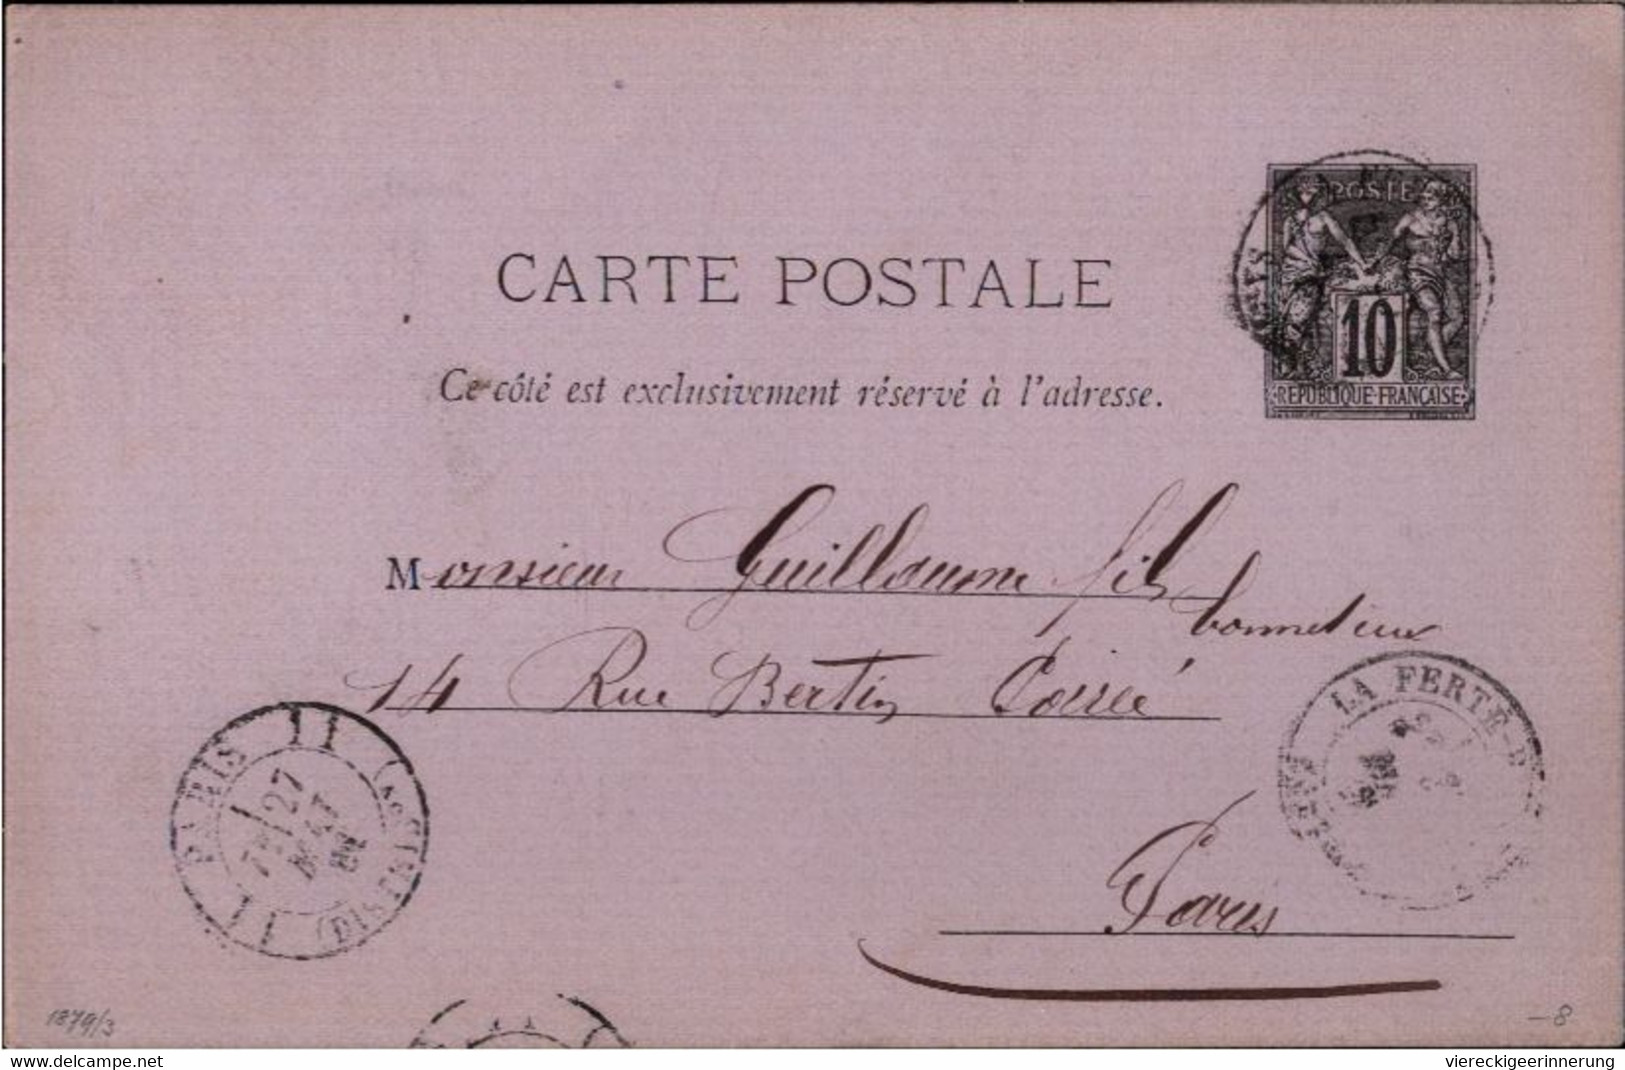 POSTE
10
REPUBLIQUE FRANÇAISE
CARTE POSTALE
Ce côté est exclusivement réservé à l'adresse.
Monsieur Guillaume fils
bonnetier
14 Rue Bertin Poirée
Paris
PARIS 11
27
MAI
11
(DISTRIB
LA FERTÉ-B
1879/3
-8
delcampe.net
viereckigeerinnerung